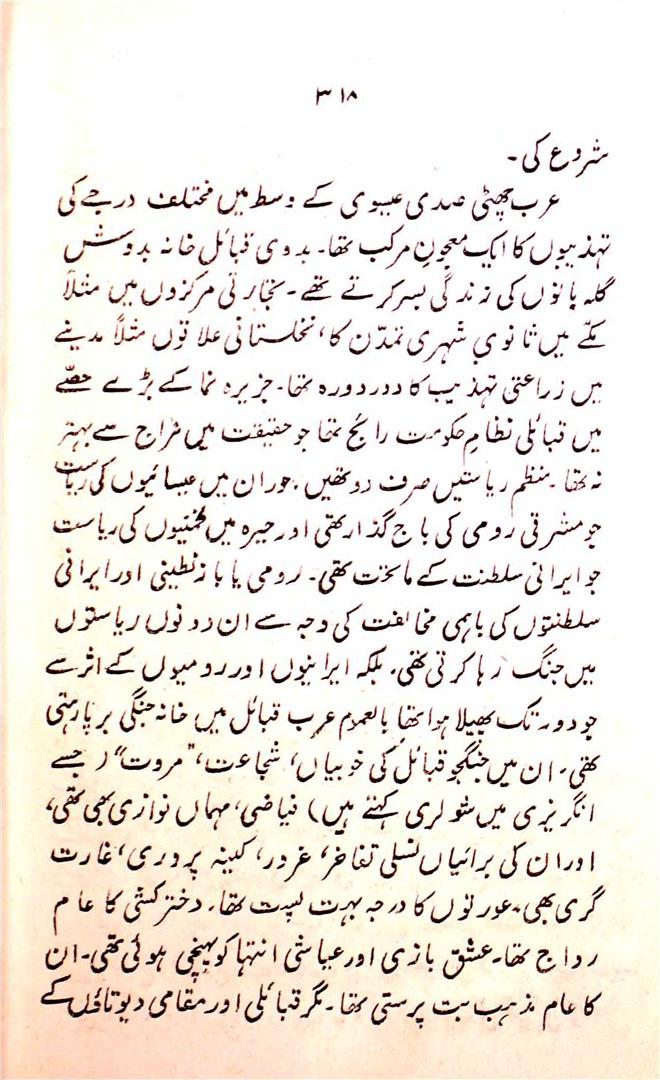 ۳۱۸
شروع کی۔
عرب چھٹی صدی عیسوی کے وسط میں مختلف درجے کی
تہذیبوں کا ایک معجونِ مرکب تھا۔ بدوی قبائل خانہ بدوش
گلہ بانوں کی زندگی بسر کرتے تھے۔ تجارتی مرکزوں میں مثلاً
مکّے میں ثانوی شہری تمدّن کا، نخلستانی علاقوں مثلاً مدینے
میں زراعتی تہذیب کا دور دورہ تھا۔ جزیرہ نما کے بڑے حصّے
میں قبائلی نظامِ حکومت رائج تھا جو حقیقت میں نراج سے بہتر
نہ تھا۔ منظم ریاستیں صرف دو تھیں، حوران میں عیسائیوں کی ریاست
جو مشرقی رومی کی باج گذار تھی اور حیرہ میں لخمیوں کی ریاست
جو ایرانی سلطنت کے ماتحت تھی۔ رومی یا بازنطینی اور ایرانی
سلطنتوں کی باہمی مخالفت کی وجہ سے ان دونوں ریاستوں
میں جنگ رہا کرتی تھی۔ بلکہ ایرانیوں اور رومیوں کے اثر سے
جو دور تک پھیلا ہوا تھا بالعموم عرب قبائل میں خانہ جنگی برپا رہتی
تھی۔ ان میں جنگجو قبائل کی خوبیاں، شجاعت، "مروت" (جسے
انگریزی میں شولری کہتے ہیں) فیاضی، مہماں نوازی بھی تھی،
اور ان کی برائیاں نسلی تفاخر، غرور، کینہ پروری، غارت
گری بھی۔ عورتوں کا درجہ بہت پست تھا۔ دختر کشی کا عام
رواج تھا۔ عشق بازی اور عیاشی انتہا کو پہنچی ہوئی تھی۔ ان
کا عام مذہب بت پرستی تھا۔ مگر قبائلی اور مقامی دیوتاؤں کے